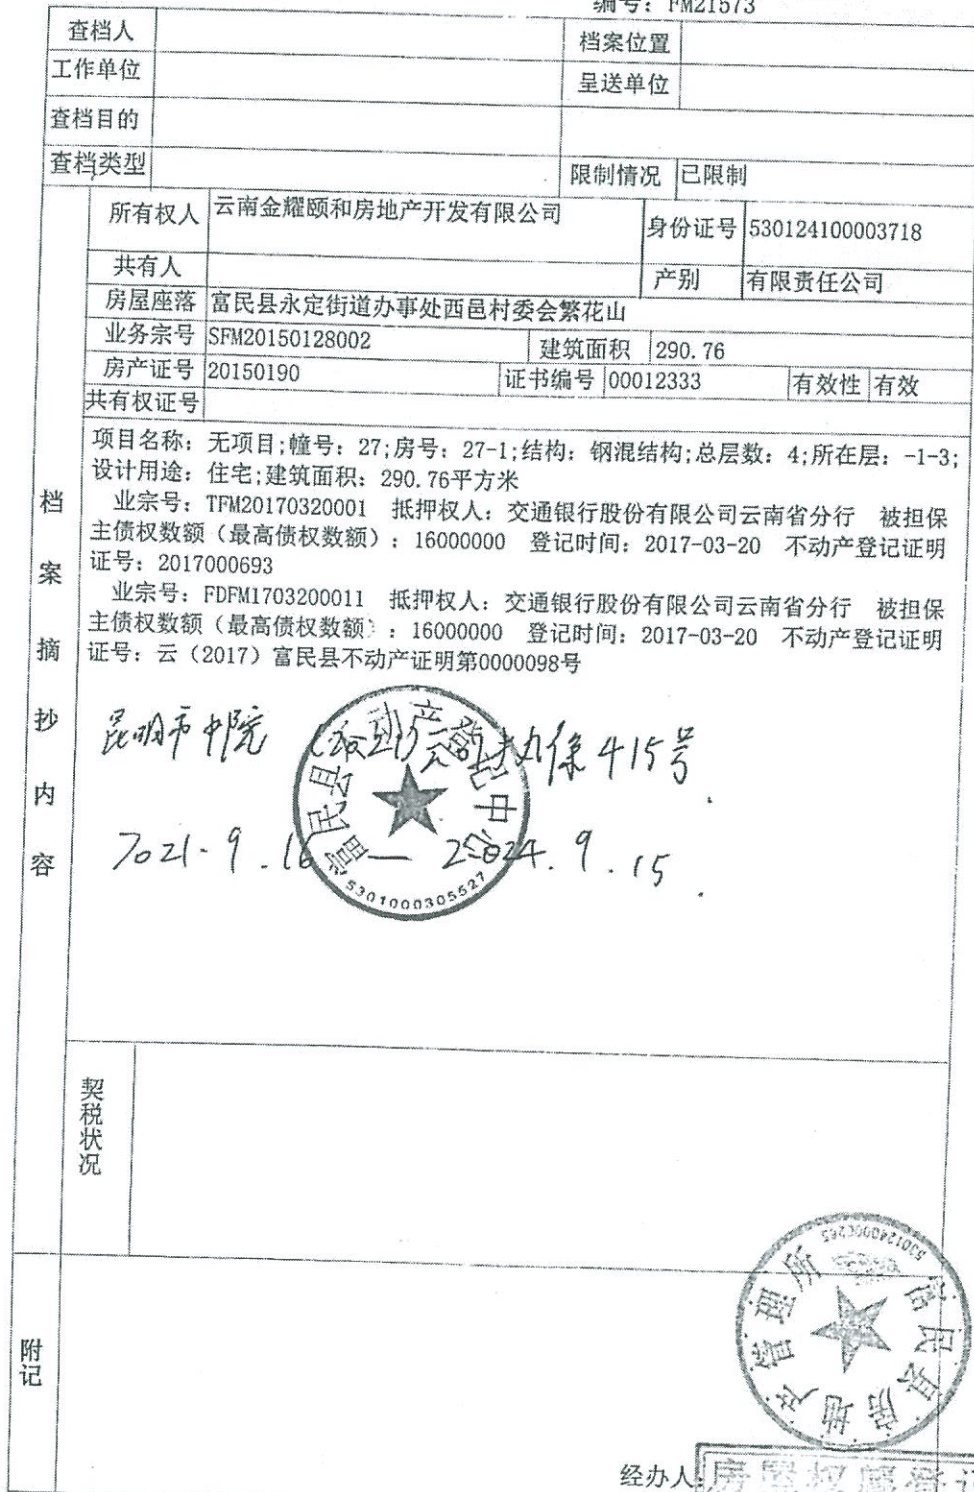 编号：FM21573
查档人 档案位置
工作单位 呈送单位
查档目的
查档类型 限制情况 已限制
所有权人 云南金耀颐和房地产开发有限公司 身份证号 530124100003718
共有人 产别 有限责任公司
房屋座落 富民县永定街道办事处西邑村委会繁花山
业务宗号 SFM20150128002 建筑面积 290.76
房产证号 20150190 证书编号 00012333 有效性 有效
共有权证号
档案摘抄内容
项目名称：无项目;幢号：27;房号：27-1;结构：钢混结构;总层数：4;所在层：-1-3;
设计用途：住宅;建筑面积：290.76平方米
业宗号：TFM20170320001 抵押权人：交通银行股份有限公司云南省分行 被担保
主债权数额（最高债权数额）：16000000 登记时间：2017-03-20 不动产登记证明
证号：2017000693
业宗号：FDFM1703200011 抵押权人：交通银行股份有限公司云南省分行 被担保
主债权数额（最高债权数额）：16000000 登记时间：2017-03-20 不动产登记证明
证号：云（2017）富民县不动产证明第0000098号
昆明市中院 保415号.
2021.9.16 — 2024.9.15.
富民县不动产登记中心
5301000305527
契税状况
附记
富民县房地产管理所
经办人: